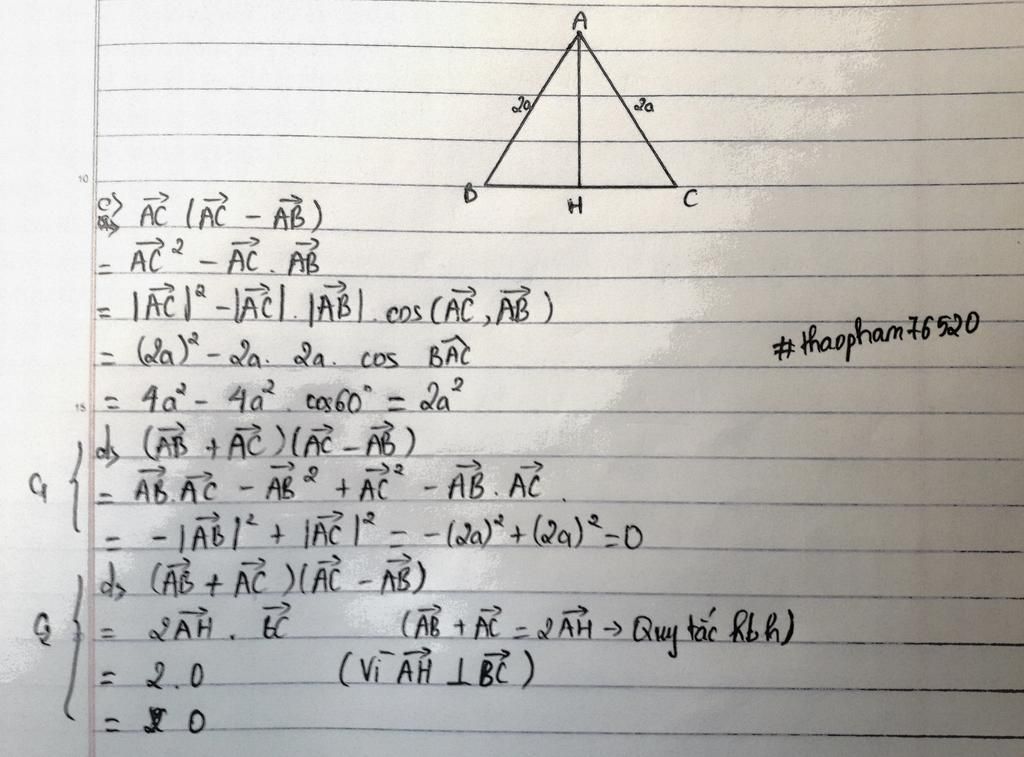 A
2a 2a
B H C
10
c) $\overrightarrow{AC}$ ($\overrightarrow{AC}$ - $\overrightarrow{AB}$)
= $\overrightarrow{AC}^2$ - $\overrightarrow{AC}$ . $\overrightarrow{AB}$
= |$\overrightarrow{AC}$|² - |$\overrightarrow{AC}$| . |$\overrightarrow{AB}$| . cos ($\overrightarrow{AC}$, $\overrightarrow{AB}$)
= (2a)² - 2a. 2a. cos $\widehat{BAC}$
#thaopham76520
15
= 4a² - 4a² . cos60° = 2a²
C1
d) ($\overrightarrow{AB}$ + $\overrightarrow{AC}$)($\overrightarrow{AC}$ - $\overrightarrow{AB}$)
= $\overrightarrow{AB}$.$\overrightarrow{AC}$ - $\overrightarrow{AB}^2$ + $\overrightarrow{AC}^2$ - $\overrightarrow{AB}$ . $\overrightarrow{AC}$.
= -|$\overrightarrow{AB}$|² + |$\overrightarrow{AC}$|² = -(2a)² + (2a)² = 0
d) ($\overrightarrow{AB}$ + $\overrightarrow{AC}$)($\overrightarrow{AC}$ - $\overrightarrow{AB}$)
C2 = 2$\overrightarrow{AH}$ . $\overrightarrow{BC}$ ($\overrightarrow{AB}$ + $\overrightarrow{AC}$ = 2$\overrightarrow{AH}$ → Quy tắc hbh)
= 2.0 (Vì $\overrightarrow{AH}$ ⊥ $\overrightarrow{BC}$)
= 0